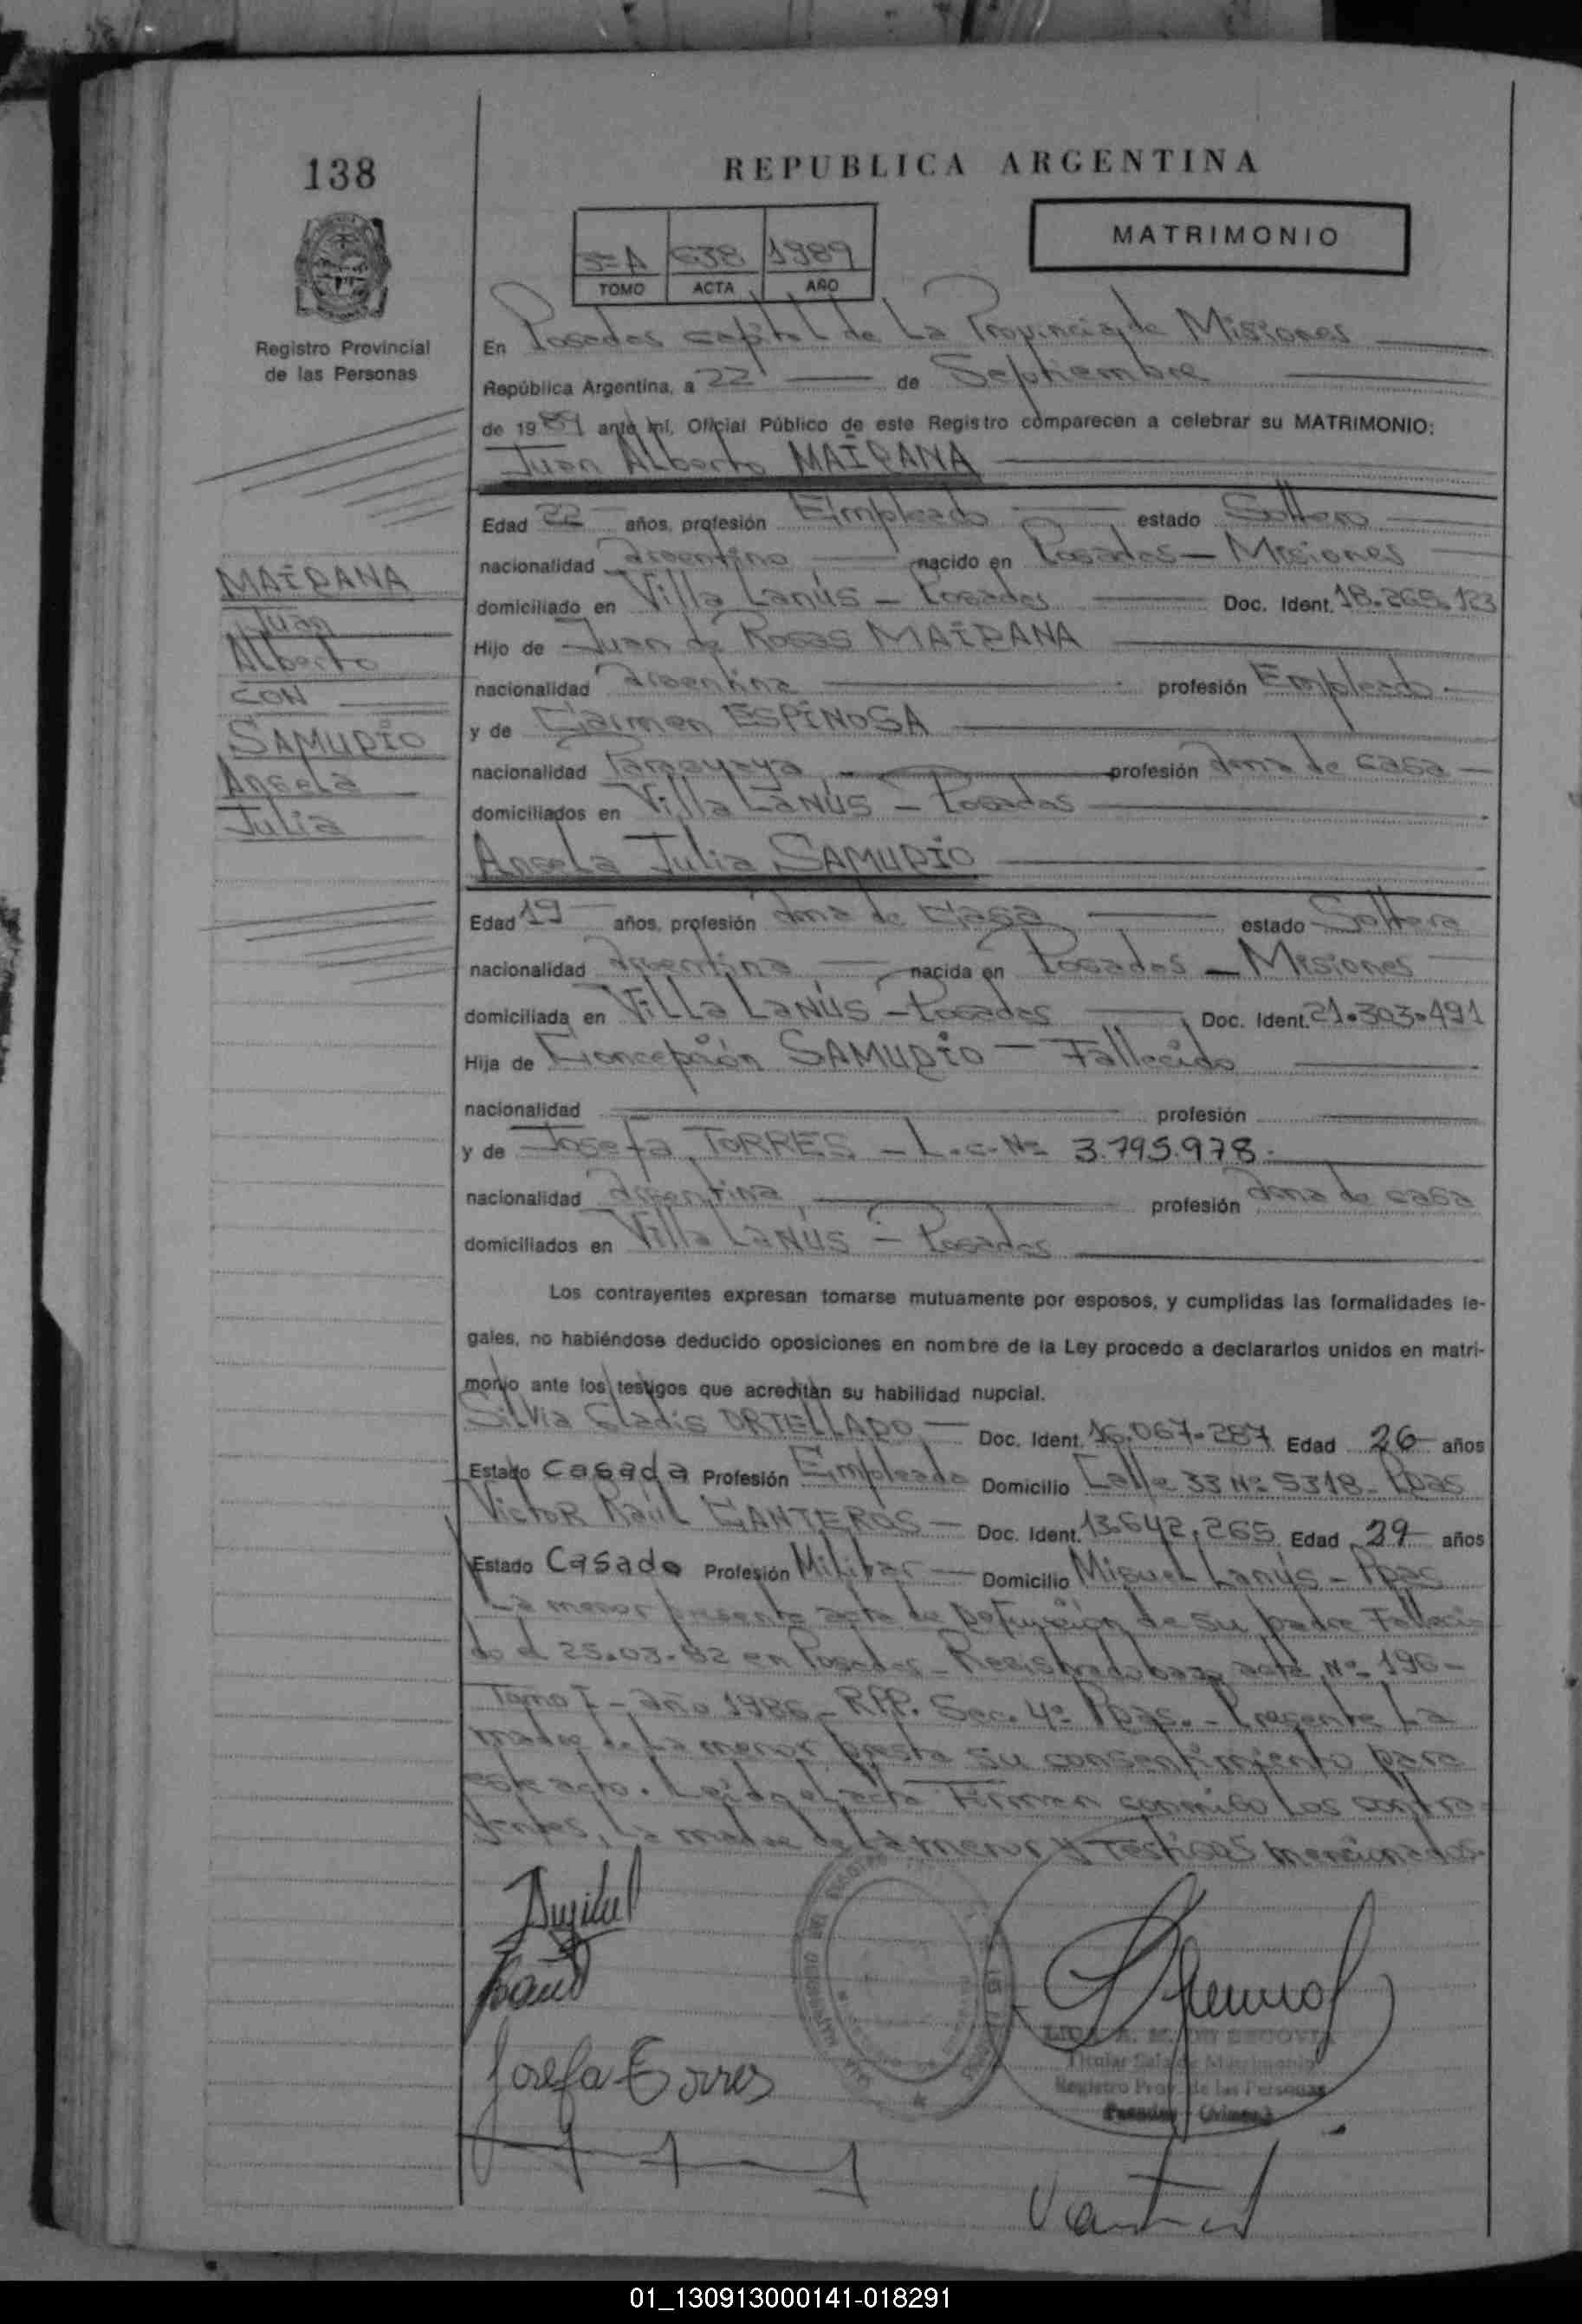 138
REPUBLICA ARGENTINA
MATRIMONIO
3=A 638 1989
TOMO ACTA AÑO
Registro Provincial
de las Personas
En Posadas capital de La Provincia de Misiones
República Argentina, a 22 de Septiembre
de 1989 ante mí, Oficial Público de este Registro comparecen a celebrar su MATRIMONIO:
Juan Alberto MAIDANA
Edad 22 años, profesión Empleado estado Soltero
nacionalidad Argentino nacido en Posadas - Misiones
domiciliado en Villa Lanús - Posadas Doc. Ident. 18.265.123
Hijo de Juan de Rosas MAIDANA
nacionalidad Argentina profesión Empleado
y de Carmen ESPINOSA
nacionalidad Paraguaya profesión Ama de casa
domiciliados en Villa Lanús - Posadas
MAIDANA
Juan
Alberto
CON
SAMUDIO
Angela
Julia
Angela Julia SAMUDIO
Edad 19 años, profesión Ama de Casa estado Soltera
nacionalidad Argentina nacida en Posadas - Misiones
domiciliada en Villa Lanús - Posadas Doc. Ident. 21.303.491
Hija de Concepción SAMUDIO - Fallecido
nacionalidad profesión
y de Josefa TORRES - L.C. Nº 3.795.978.
nacionalidad Argentina profesión Ama de casa
domiciliados en Villa Lanús - Posadas
Los contrayentes expresan tomarse mutuamente por esposos, y cumplidas las formalidades le-
gales, no habiéndose deducido oposiciones en nombre de la Ley procedo a declararlos unidos en matri-
monio ante los testigos que acreditan su habilidad nupcial.
Silvia Gladis ORTELLADO - Doc. Ident. 16.067.287 Edad 26 años
Estado Casada Profesión Empleada Domicilio Calle 33 Nº 5318 - Pdas
Victor Raúl CANTEROS - Doc. Ident. 13.642.265 Edad 29 años
Estado Casado Profesión Militar - Domicilio Miguel Lanús - Pdas
La menor presenta acta de defunción de su padre Falleci-
do el 25.03.82 en Posadas - Registrado bajo acta Nº 196 -
Tomo I - año 1986 - RPP. Sec. 4º Pdas. - Presente La
madre de La menor presta su consentimiento para
este acto. Leída el acta Firman conmigo Los contra-
yentes, La madre de La menor y Testigos mencionados.
Josefa Torres
SEGOVIA
Titular Sala de Matrimonio
Registro Prov. de las Personas
Posadas - (Mnes.)
01_130913000141-018291